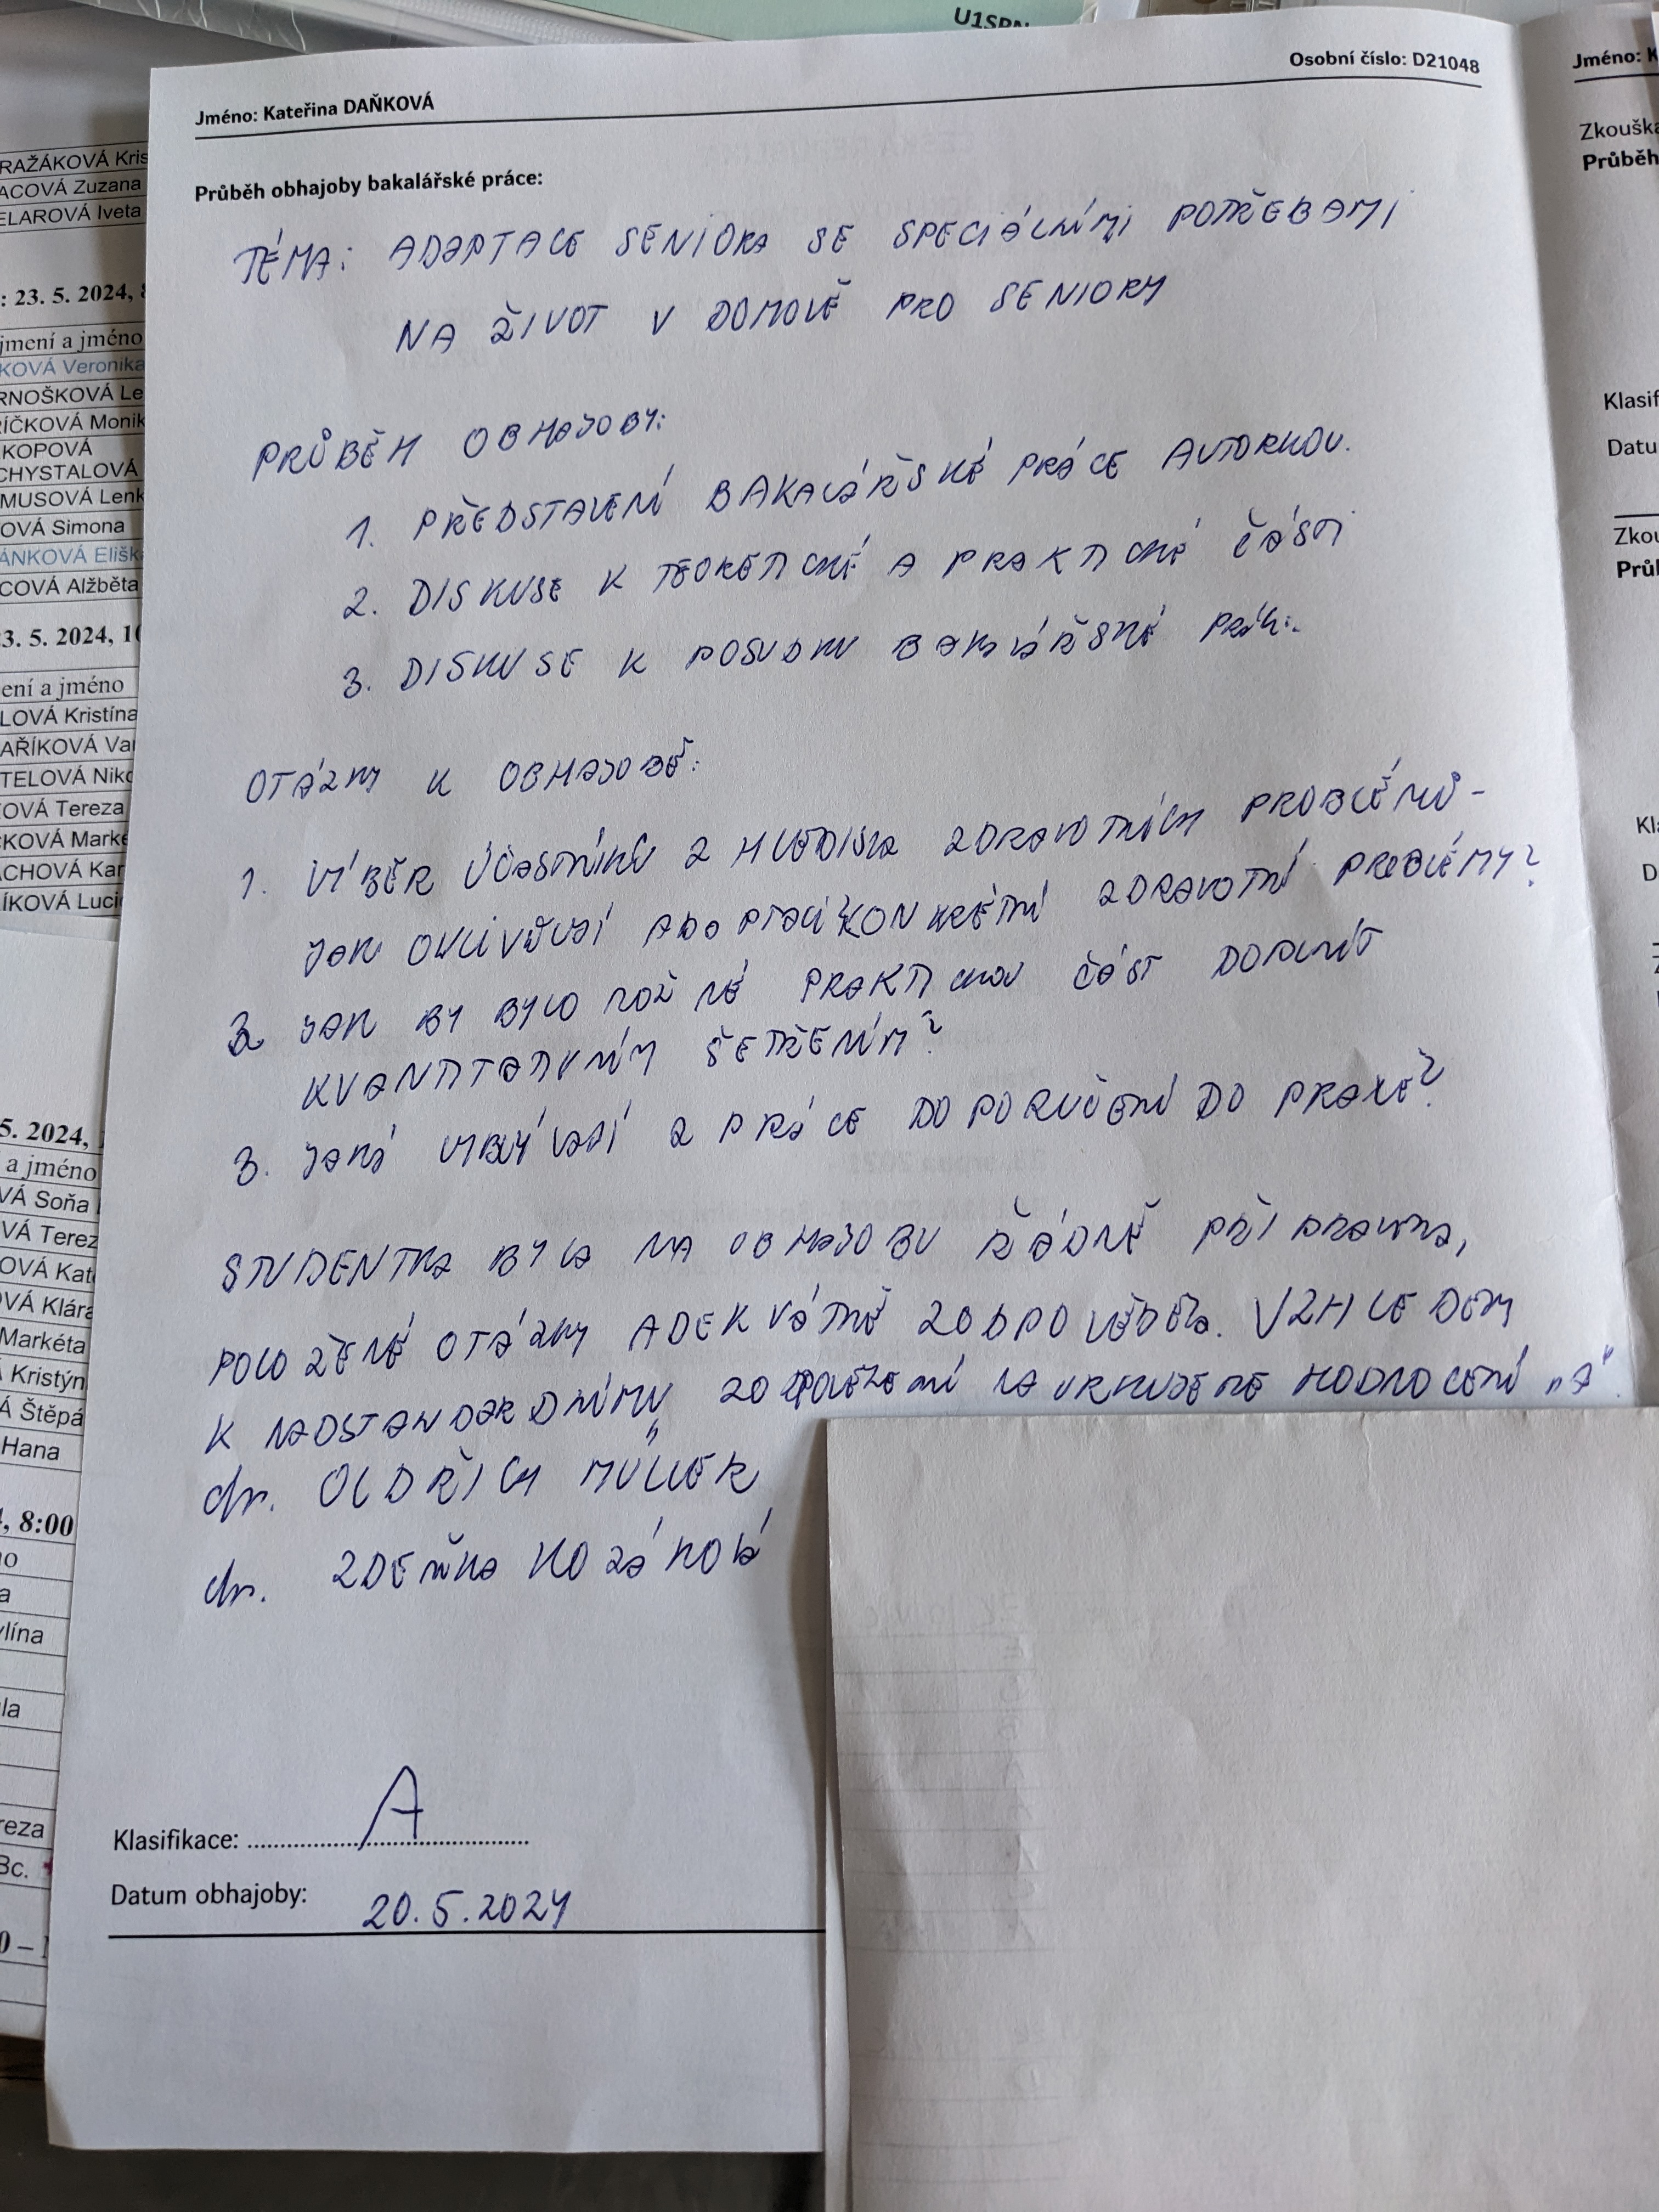 U1SPN
Osobní číslo: D21048
Jméno: Kateřina DAŇKOVÁ
Průběh obhajoby bakalářské práce:
TÉMA: ADAPTACE SENIORA SE SPECIÁLNÍMI POTŘEBAMI
NA ŽIVOT V DOMOVĚ PRO SENIORY
PRŮBĚH OBHAJOBY:
1. PŘEDSTAVENÍ BAKALÁŘSKÉ PRÁCE AUTORKOU.
2. DISKUSE K TEORETICKÉ A PRAKTICKÉ ČÁSTI
3. DISKUSE K POSUDKU BAKALÁŘSKÉ PRÁCE.
OTÁZKY K OBHAJOBĚ:
1. VÝBĚR ÚČASTNÍKŮ Z HLEDISKA ZDRAVOTNÍCH PROBLÉMŮ -
JAK OVLIVŇUJÍ ADAPTACI KONKRÉTNÍ ZDRAVOTNÍ PROBLÉMY?
2. JAK BY BYLO MOŽNÉ PRAKTICKOU ČÁST DOPLNIT
KVANTITATIVNÍM ŠETŘENÍM?
3. JAKÁ VYPLÝVAJÍ Z PRÁCE DOPORUČENÍ DO PRAXE?
STUDENTKA BYLA NA OBHAJOBU ŘÁDNĚ PŘIPRAVENA,
POLOŽENÉ OTÁZKY ADEKVÁTNĚ ZODPOVĚDĚLA. VZHLEDEM
K NADSTANDARDNÍMU ZODPOVĚZENÍ NAVRHUJEME HODNOCENÍ "A".
dr. OLDŘICH MÜLLER
dr. ZDEŇKA KOZÁKOVÁ
Klasifikace: A
Datum obhajoby: 20.5.2024
RAŽÁKOVÁ Kris
ACOVÁ Zuzana
ELAROVÁ Iveta
: 23. 5. 2024,
jmení a jméno
KOVÁ Veronika
RNOŠKOVÁ Le
ÍČKOVÁ Monik
KOPOVÁ
CHYSTALOVÁ
MUSOVÁ Lenk
OVÁ Simona
ÁNKOVÁ Elišk
COVÁ Alžběta
3. 5. 2024, 10
ení a jméno
LOVÁ Kristína
AŘÍKOVÁ Va
TELOVÁ Niko
OVÁ Tereza
KOVÁ Marké
CHOVÁ Kar
ÍKOVÁ Luci
5. 2024,
a jméno
VÁ Soňa
VÁ Terez
OVÁ Kat
VÁ Klára
Markéta
Kristýn
Á Štěpá
Hana
, 8:00
no
a
vlína
la
reza
Bc.
0 –
Jméno: K
Zkoušk
Průběh
Klasif
Datu
Zkou
Prů
Kl
D